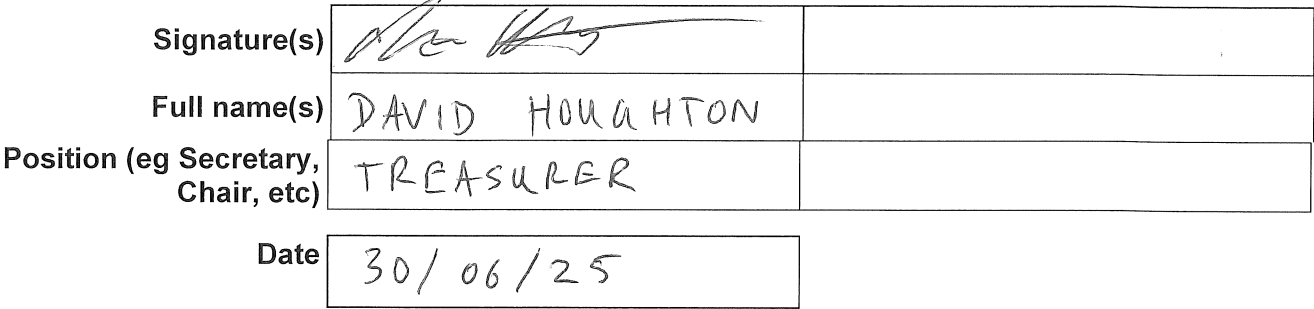 Signature(s)
Full name(s) DAVID HOUGHTON
Position (eg Secretary,
Chair, etc) TREASURER
Date 30/06/25